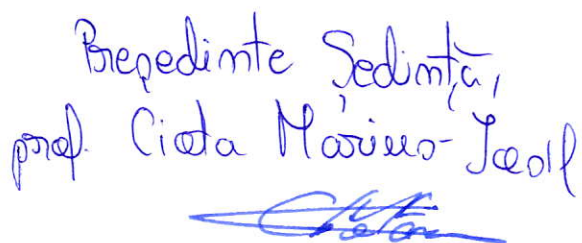 Președinte Ședință,
prof. Ciota Marius-Ioan